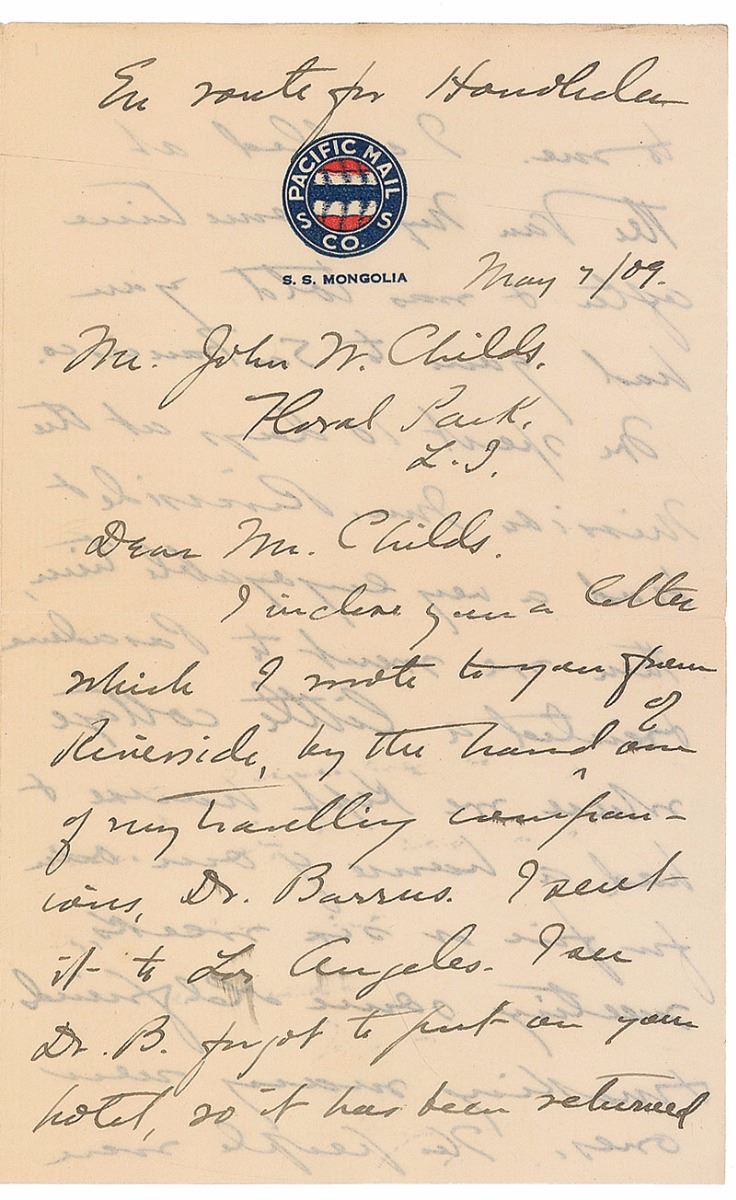 En route for Honolulu
PACIFIC MAIL
S S
CO.
S. S. MONGOLIA
May 7/09.
Mr. John W. Childs.
Floral Park.
L. I.
Dear Mr. Childs.
I inclose you a letter
which I wrote to you from
of
Riverside, by the hand one
^
of my travelling compan-
ions, Dr. Barrus. I sent
it to Los Angeles. I see
Dr. B. forgot to put on your
hotel, so it has been returned